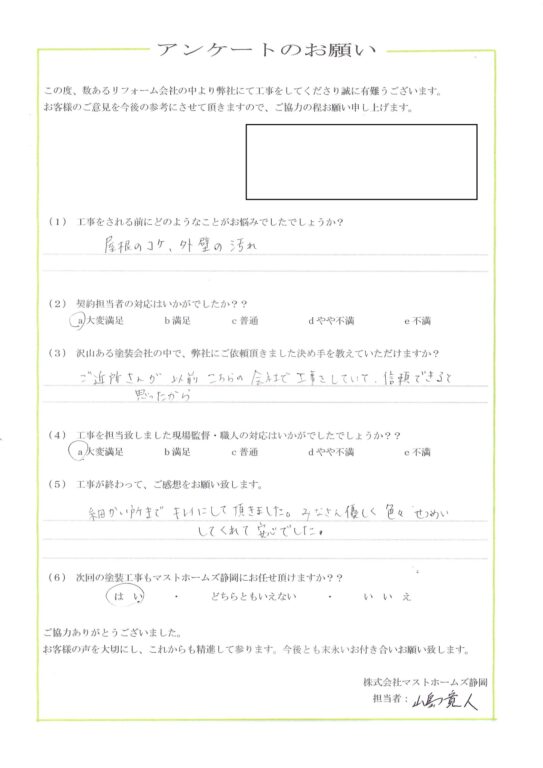 アンケートのお願い
この度、数あるリフォーム会社の中より弊社にて工事をしてくださり誠に有難うございます。
お客様のご意見を今後の参考にさせて頂きますので、ご協力の程お願い申し上げます。
(1) 工事をされる前にどのようなことがお悩みでしたでしょうか？
屋根のコケ、外壁の汚れ
(2) 契約担当者の対応はいかがでしたか？？
a大変満足 b満足 c普通 dやや不満 e不満
(3) 沢山ある塗装会社の中で、弊社にご依頼頂きました決め手を教えていただけますか？
ご近所さんが以前こちらの会社で工事をしていて、信頼できると
思ったから
(4) 工事を担当致しました現場監督・職人の対応はいかがでしたでしょうか？
a大変満足 b満足 c普通 dやや不満 e不満
(5) 工事が終わって、ご感想をお願い致します。
細かい所までキレイにして頂きました。みなさん優しく色々せつめい
してくれて安心でした。
(6) 次回の塗装工事もマストホームズ静岡にお任せ頂けますか？？
はい ・ どちらともいえない ・ いいえ
ご協力ありがとうございました。
お客様の声を大切にし、これからも精進して参ります。今後とも末永いお付き合いお願い致します。
株式会社マストホームズ静岡
担当者：